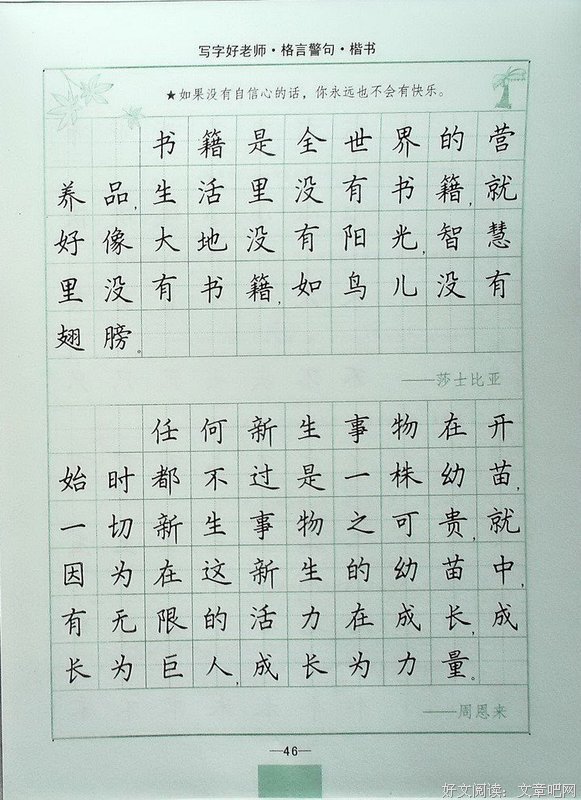 写字好老师·格言警句·楷书
★如果没有自信心的话，你永远也不会有快乐。
书籍是全世界的营
养品，生活里没有书籍，就
好像大地没有阳光，智慧
里没有书籍，如鸟儿没有
翅膀。
——莎士比亚
任何新生事物在开
始时都不过是一株幼苗，
一切新生事物之可贵，就
因为在这新生的幼苗中，
有无限的活力在成长，成
长为巨人，成长为力量。
——周恩来
—46—
好文阅读：文章吧网